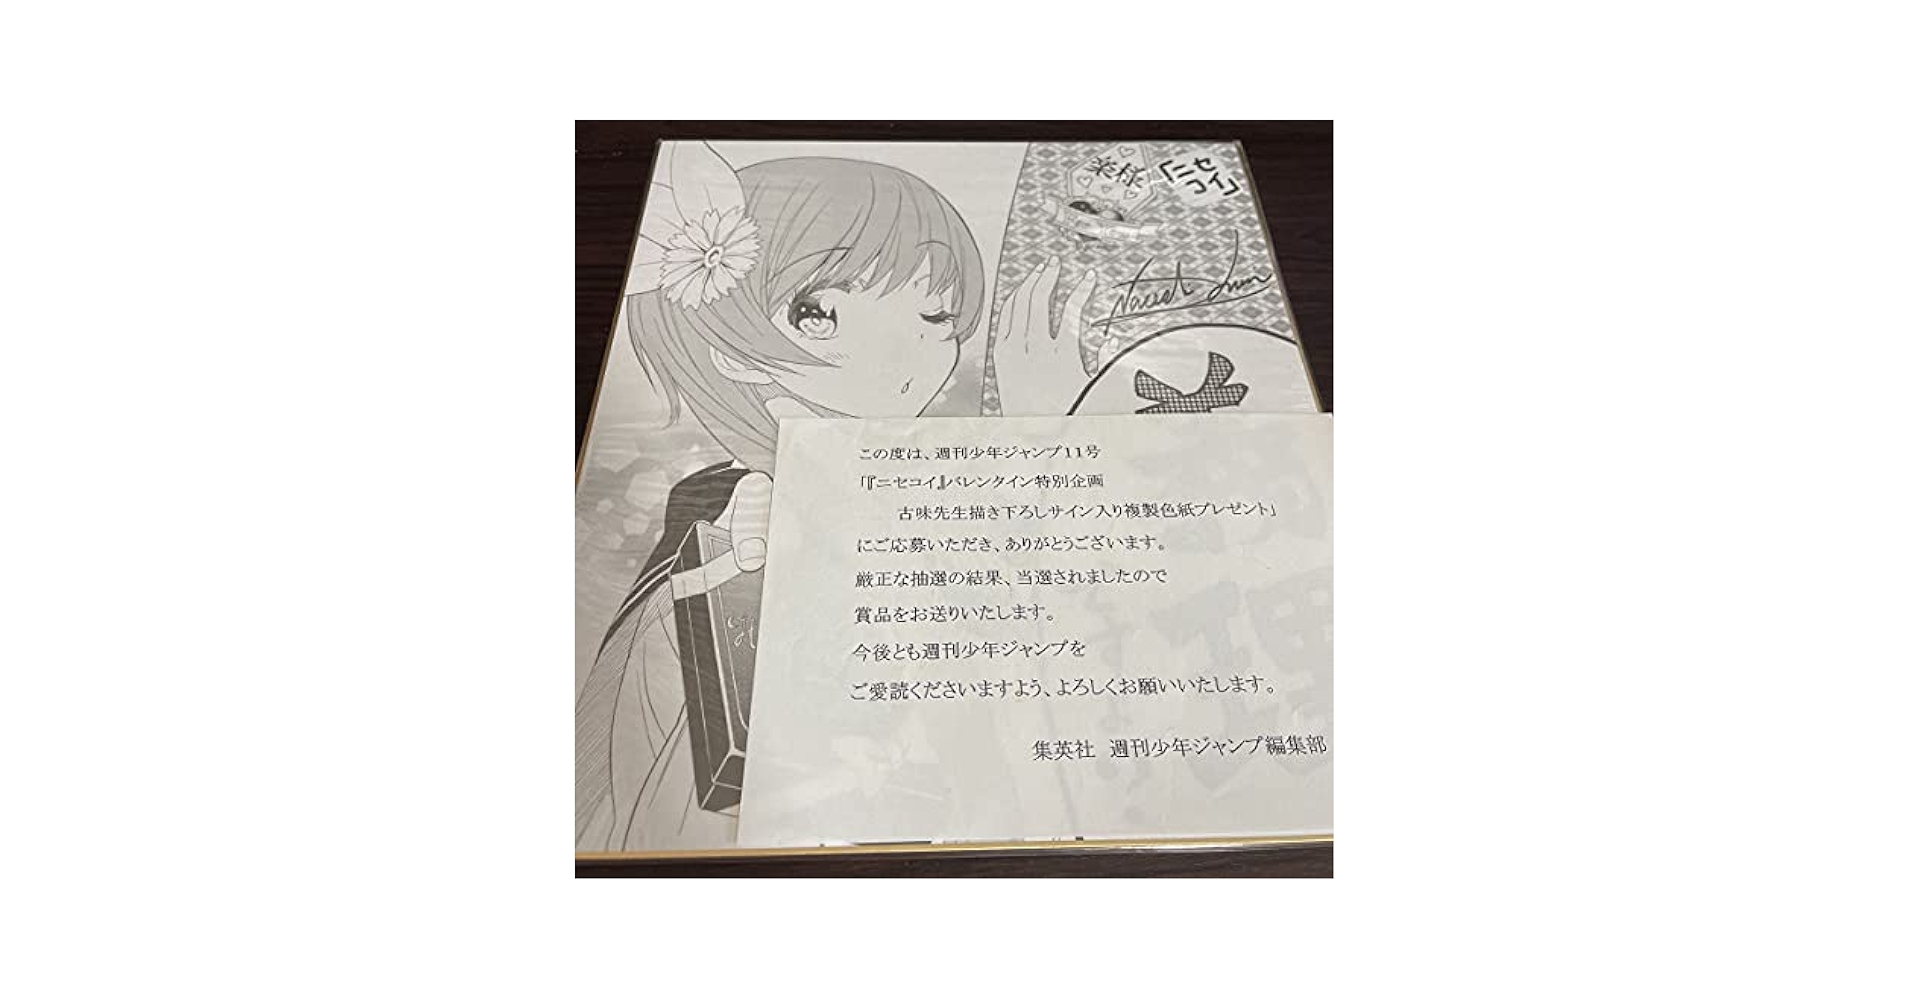 楽様
「ニセ
コイ」
この度は、週刊少年ジャンプ11号
「『ニセコイ』バレンタイン特別企画
古味先生描き下ろしサイン入り複製色紙プレゼント」
にご応募いただき、ありがとうございます。
厳正な抽選の結果、当選されましたので
賞品をお送りいたします。
今後とも週刊少年ジャンプを
ご愛読くださいますよう、よろしくお願いいたします。
集英社 週刊少年ジャンプ編集部